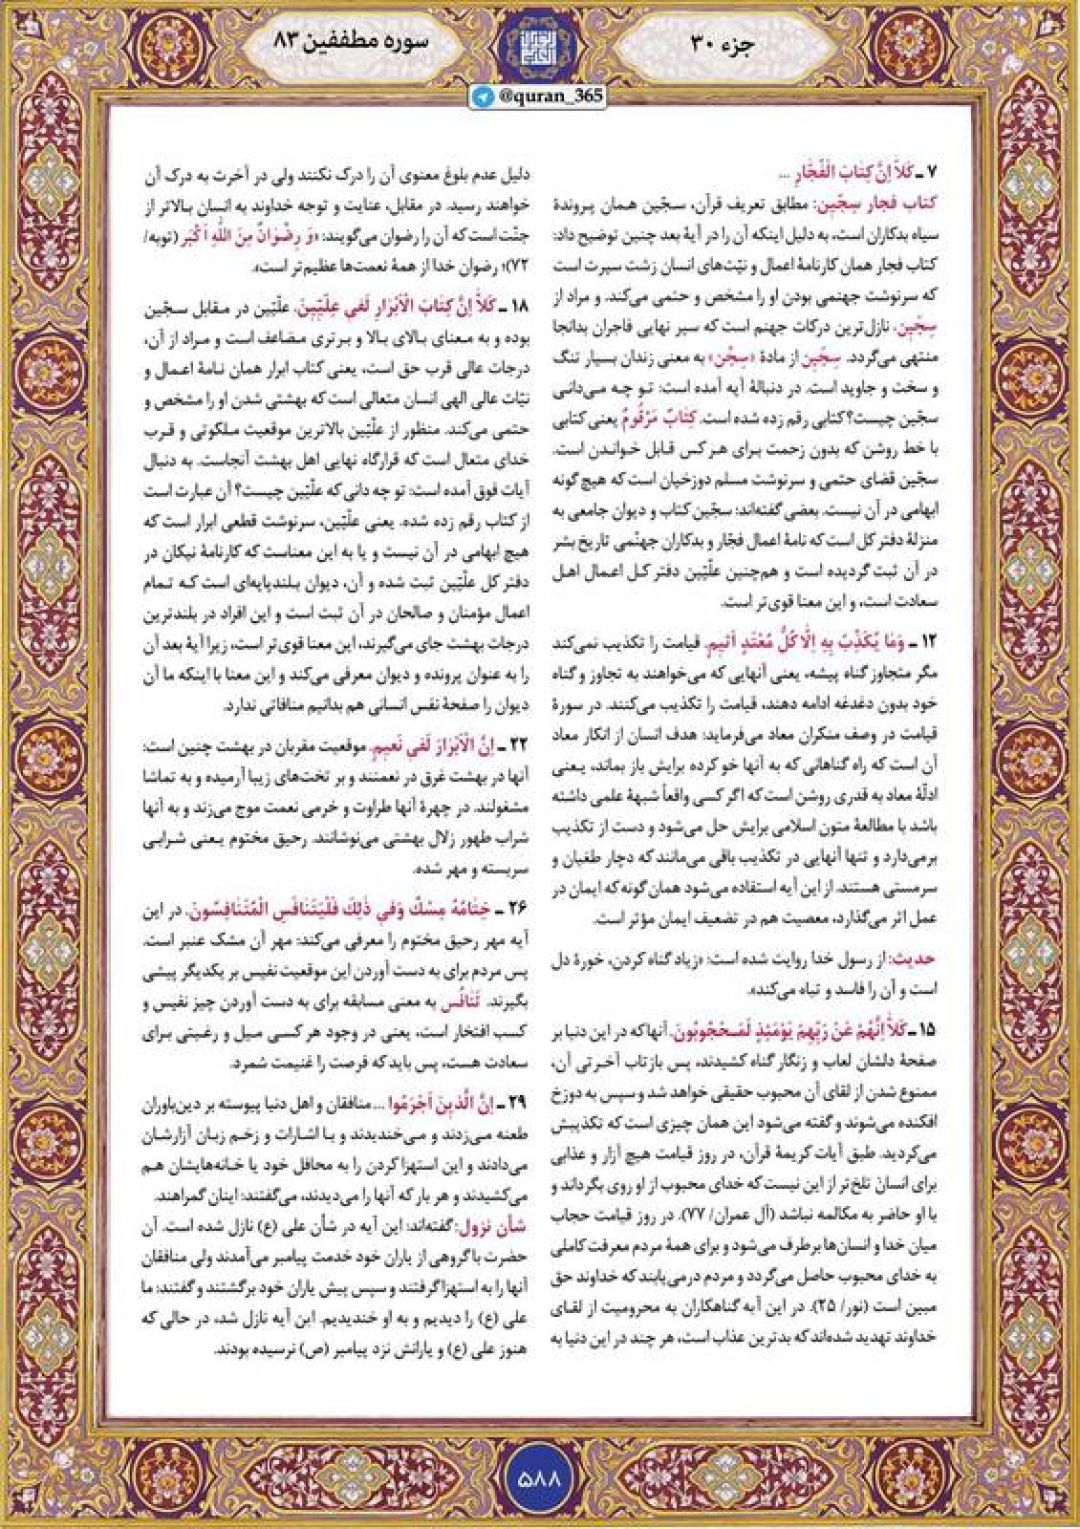 جزء ۳۰
سوره مطففین ۸۳
@quran_365
۷ ـ كَلاَّ اِنَّ كِتَابَ الْفُجَّارِ ...
کتاب فجار سِجّین: مطابق تعریف قرآن، سجّین همان پروندهٔ
سیاه بدکاران است، به دلیل اینکه آن را در آیهٔ بعد چنین توضیح داد:
کتاب فجار همان کارنامهٔ اعمال و نیّت‌های انسان زشت سیرت است
که سرنوشت جهنمی بودن او را مشخص و حتمی می‌کند. و مراد از
سِجّین، نازل‌ترین درکات جهنم است که سیر نهایی فاجران بدانجا
منتهی می‌گردد. سِجّین از مادهٔ «سِجْن» به معنی زندان بسیار تنگ
و سخت و جاوید است. در دنبالهٔ آیه آمده است: تو چه می‌دانی
سجّین چیست؟ کتابی رقم زده شده است. كِتَابٌ مَرْقُومٌ یعنی کتابی
با خط روشن که بدون زحمت برای هر کس قابل خواندن است.
سجّین قضای حتمی و سرنوشت مسلم دوزخیان است که هیچ گونه
ابهامی در آن نیست. بعضی گفته‌اند: سجّین کتاب و دیوان جامعی به
منزلهٔ دفتر کل است که نامهٔ اعمال فجّار و بدکاران جهنّمی تاریخ بشر
در آن ثبت گردیده است و هم‌چنین علّیّین دفتر کل اعمال اهل
سعادت است، و این معنا قوی‌تر است.
۱۲ ـ وَمَا يُكَذِّبُ بِهِ اِلَّا كُلُّ مُعْتَدٍ اَثيمٍ. قیامت را تکذیب نمی‌کند
مگر متجاوز گناه پیشه، یعنی آنهایی که می‌خواهند به تجاوز و گناه
خود بدون دغدغه ادامه دهند، قیامت را تکذیب می‌کنند. در سورهٔ
قیامت در وصف منکران معاد می‌فرماید: هدف انسان از انکار معاد
آن است که راه گناهانی که به آنها خو کرده برایش باز بماند، یعنی
ادلّهٔ معاد به قدری روشن است که اگر کسی واقعاً شبههٔ علمی داشته
باشد با مطالعهٔ متون اسلامی برایش حل می‌شود و دست از تکذیب
برمی‌دارد و تنها آنهایی در تکذیب باقی می‌مانند که دچار طغیان و
سرمستی هستند. از این آیه استفاده می‌شود همان گونه که ایمان در
عمل اثر می‌گذارد، معصیت هم در تضعیف ایمان مؤثر است.
حدیث: از رسول خدا روایت شده است: «زیاد گناه کردن، خورهٔ دل
است و آن را فاسد و تباه می‌کند».
۱۵ ـ كَلاَّ اِنَّهُمْ عَنْ رَبِّهِمْ يَوْمَئِذٍ لَمَحْجُوبُونَ. آنها که در این دنیا بر
صفحهٔ دلشان لعاب و زنگار گناه کشیدند، پس بازتاب آخرتی آن،
ممنوع شدن از لقای آن محبوب حقیقی خواهد شد و سپس به دوزخ
افکنده می‌شوند و گفته می‌شود این همان چیزی است که تکذیبش
می‌کردید. طبق آیات کریمهٔ قرآن، در روز قیامت هیچ آزار و عذابی
برای انسان تلخ‌تر از این نیست که خدای محبوب از او روی بگرداند و
با او حاضر به مکالمه نباشد (آل عمران/ ۷۷). در روز قیامت حجاب
میان خدا و انسان‌ها برطرف می‌شود و برای همهٔ مردم معرفت کاملی
به خدای محبوب حاصل می‌گردد و مردم درمی‌یابند که خداوند حق
مبین است (نور/ ۲۵). در این آیه گناهکاران به محرومیت از لقای
خداوند تهدید شده‌اند که بدترین عذاب است، هر چند در این دنیا به
دلیل عدم بلوغ معنوی آن را درک نکنند ولی در آخرت به درک آن
خواهند رسید. در مقابل، عنایت و توجه خداوند به انسان بالاتر از
جنّت است که آن را رضوان می‌گویند: «وَ رِضْوَانٌ مِنَ اللّٰهِ اَكْبَر (توبه/
۷۲)؛ رضوان خدا از همهٔ نعمت‌ها عظیم‌تر است».
۱۸ ـ كَلاَّ اِنَّ كِتَابَ الْاَبْرَارِ لَفي عِلِّيّينَ. علّیّین در مقابل سجّین
بوده و به معنای بالای بالا و برتری مضاعف است و مراد از آن،
درجات عالی قرب حق است، یعنی کتاب ابرار همان نامهٔ اعمال و
نیّات عالی الهی انسان متعالی است که بهشتی شدن او را مشخص و
حتمی می‌کند. منظور از علّیّین بالاترین موقعیت ملکوتی و قرب
خدای متعال است که قرارگاه نهایی اهل بهشت آنجاست. به دنبال
آیات فوق آمده است: تو چه دانی که علّیّین چیست؟ آن عبارت است
از کتاب رقم زده شده. یعنی علّیّین، سرنوشت قطعی ابرار است که
هیچ ابهامی در آن نیست و یا به این معناست که کارنامهٔ نیکان در
دفتر کل علّیّین ثبت شده و آن، دیوان بلندپایه‌ای است که تمام
اعمال مؤمنان و صالحان در آن ثبت است و این افراد در بلندترین
درجات بهشت جای می‌گیرند، این معنا قوی‌تر است، زیرا آیهٔ بعد آن
را به عنوان پرونده و دیوان معرفی می‌کند و این معنا با اینکه ما آن
دیوان را صفحهٔ نفس انسانی هم بدانیم منافاتی ندارد.
۲۲ ـ اِنَّ الْاَبْرَارَ لَفي نَعيمٍ. موقعیت مقربان در بهشت چنین است:
آنها در بهشت غرق در نعمتند و بر تخت‌های زیبا آرمیده و به تماشا
مشغولند. در چهرهٔ آنها طراوت و خرمی نعمت موج می‌زند و به آنها
شراب طهور زلال بهشتی می‌نوشانند. رحیق مختوم یعنی شرابی
سربسته و مهر شده.
۲۶ ـ خِتَامُهُ مِسْكٌ وَفي ذٰلِكَ فَلْيَتَنَافَسِ الْمُتَنَافِسُونَ. در این
آیه مهر رحیق مختوم را معرفی می‌کند: مهر آن مشک عنبر است.
پس مردم برای به دست آوردن این موقعیت نفیس بر یکدیگر پیشی
بگیرند. تَنَافُس به معنی مسابقه برای به دست آوردن چیز نفیس و
کسب افتخار است، یعنی در وجود هر کسی میل و رغبتی برای
سعادت هست، پس باید که فرصت را غنیمت شمرد.
۲۹ ـ اِنَّ الَّذينَ اَجْرَمُوا ... منافقان و اهل دنیا پیوسته بر دین‌باوران
طعنه می‌زدند و می‌خندیدند و با اشارات و زخم زبان آزارشان
می‌دادند و این استهزا کردن را به محافل خود یا خانه‌هایشان هم
می‌کشیدند و هر بار که آنها را می‌دیدند، می‌گفتند: اینان گمراهند.
شأن نزول: گفته‌اند: این آیه در شأن علی (ع) نازل شده است. آن
حضرت با گروهی از یاران خود خدمت پیامبر می‌آمدند ولی منافقان
آنها را به استهزا گرفتند و سپس پیش یاران خود برگشتند و گفتند: ما
علی (ع) را دیدیم و به او خندیدیم. این آیه نازل شد، در حالی که
هنوز علی (ع) و یارانش نزد پیامبر (ص) نرسیده بودند.
۵۸۸